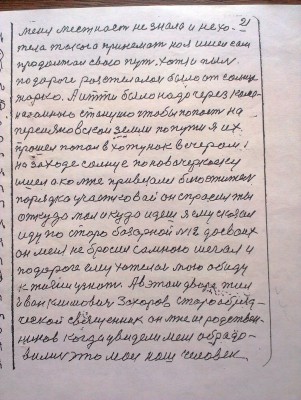 21
меня местност не знала и не хо-
тела такого принемат но я шел сам
продолжал своего пут. хотя и
по дороге растелался было от солнце
жарко. А итти было надо через Кала-
на станцию чтобы попаст на
персияновской земли по пути я их
прошел попал в хотунок вечером.
на заходе солнце по новочеркаску
шел а ко мне привезали блюстител
порядка участковой он спросил ты
откуда мол и куда идеш я ему сказал
иду по старо базарной №12 до своих
он меня не бросил самною шагал и
подороге ему хотелось мою обиду
к жизни узнат. А в этом дворе жил
Иван Кимович Захоров старообряд-
ческой священник он и мне родствен-
ников когда увидели меня обрадо-
вились это мол наш человек